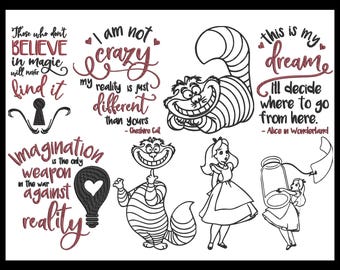 Those who don't
BELIEVE
in magic
will never
find it
I am not
crazy
my reality is just
different
than yours
- Cheshire Cat
this is my
dream
I'll decide
where to go
from here.
- Alice in Wonderland
Imagination
is the only
weapon
in the war
against
reality